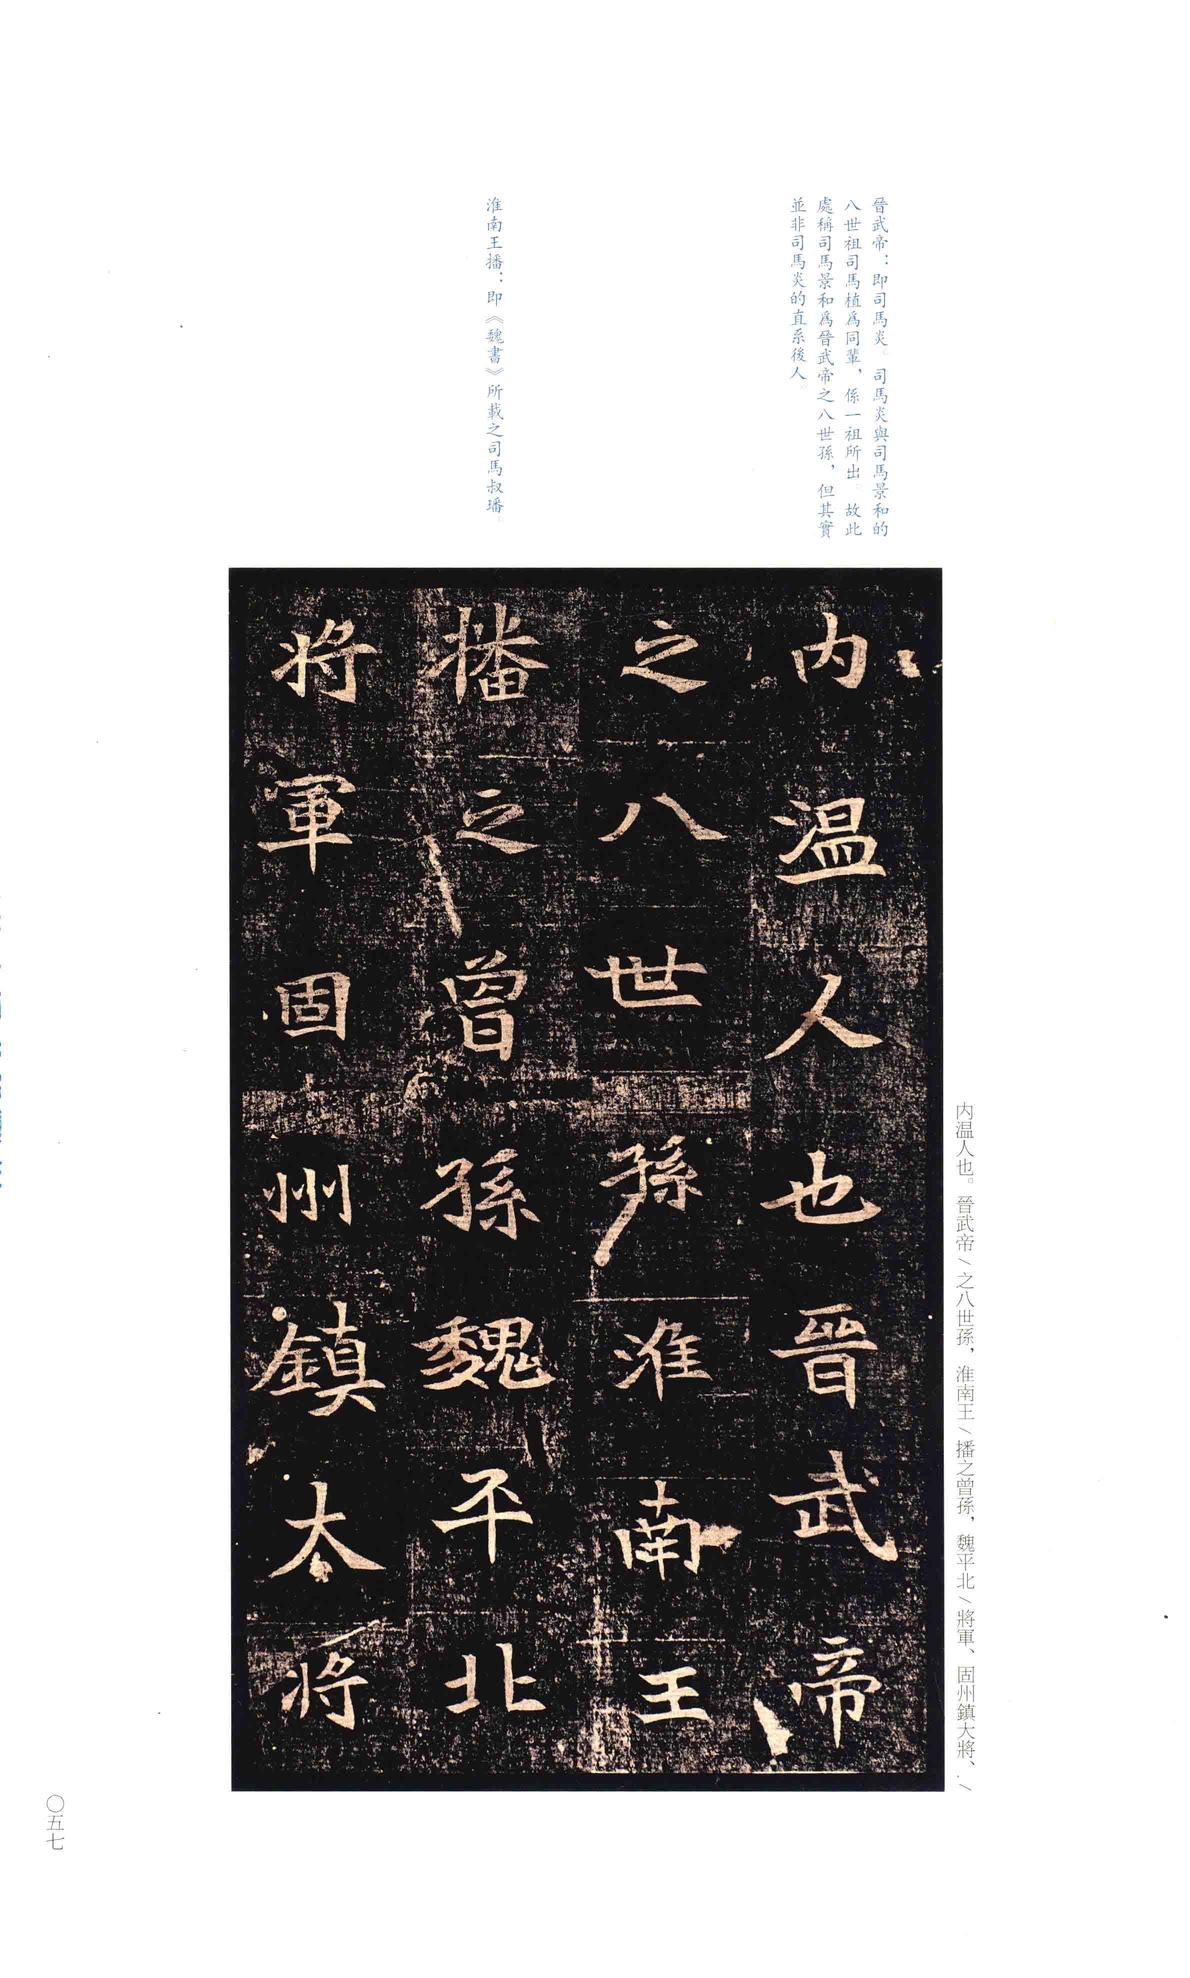 晉武帝：即司馬炎。司馬炎與司馬景和的
八世祖司馬植爲同輩，係一祖所出。故此
處稱司馬景和爲晉武帝之八世孫，但其實
並非司馬炎的直系後人。
淮南王播：即《魏書》所載之司馬叔璠。
内温人也晉武帝
之八世孫淮南王
播之曾孫魏平北
將軍固州鎮大將
内温人也。晉武帝／之八世孫，淮南王／播之曾孫，魏平北／將軍、固州鎮大將、／
〇五七